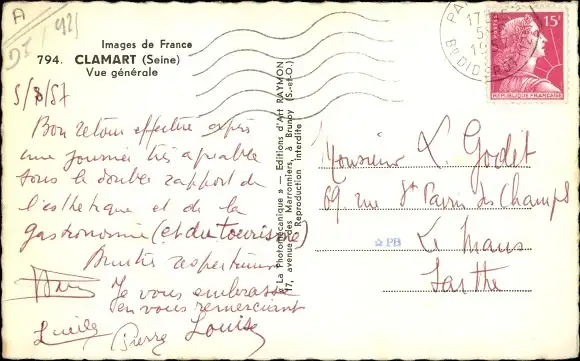 A
Images de France
794. CLAMART (Seine)
Vue générale
5/8/57
Bon retour effectué après
une journée très agréable
sous le double rapport de
l'esthétique et de la
gastronomie (et du tourisme)
Amitiés respectueuses
Je vous embrasse
en vous remerciant
Lucile Pierre Louise
« La Photomécanique » — Editions d'Art RAYMON
17, avenue des Marronniers, à Brunoy (S.-et-O.)
Reproduction interdite
PA
17
19
Bd DIDEROT
15F
REPUBLIQUE FRANÇAISE
Monsieur L. Godet
69 rue St Pavin des Champs
PB
Le Mans
Sarthe